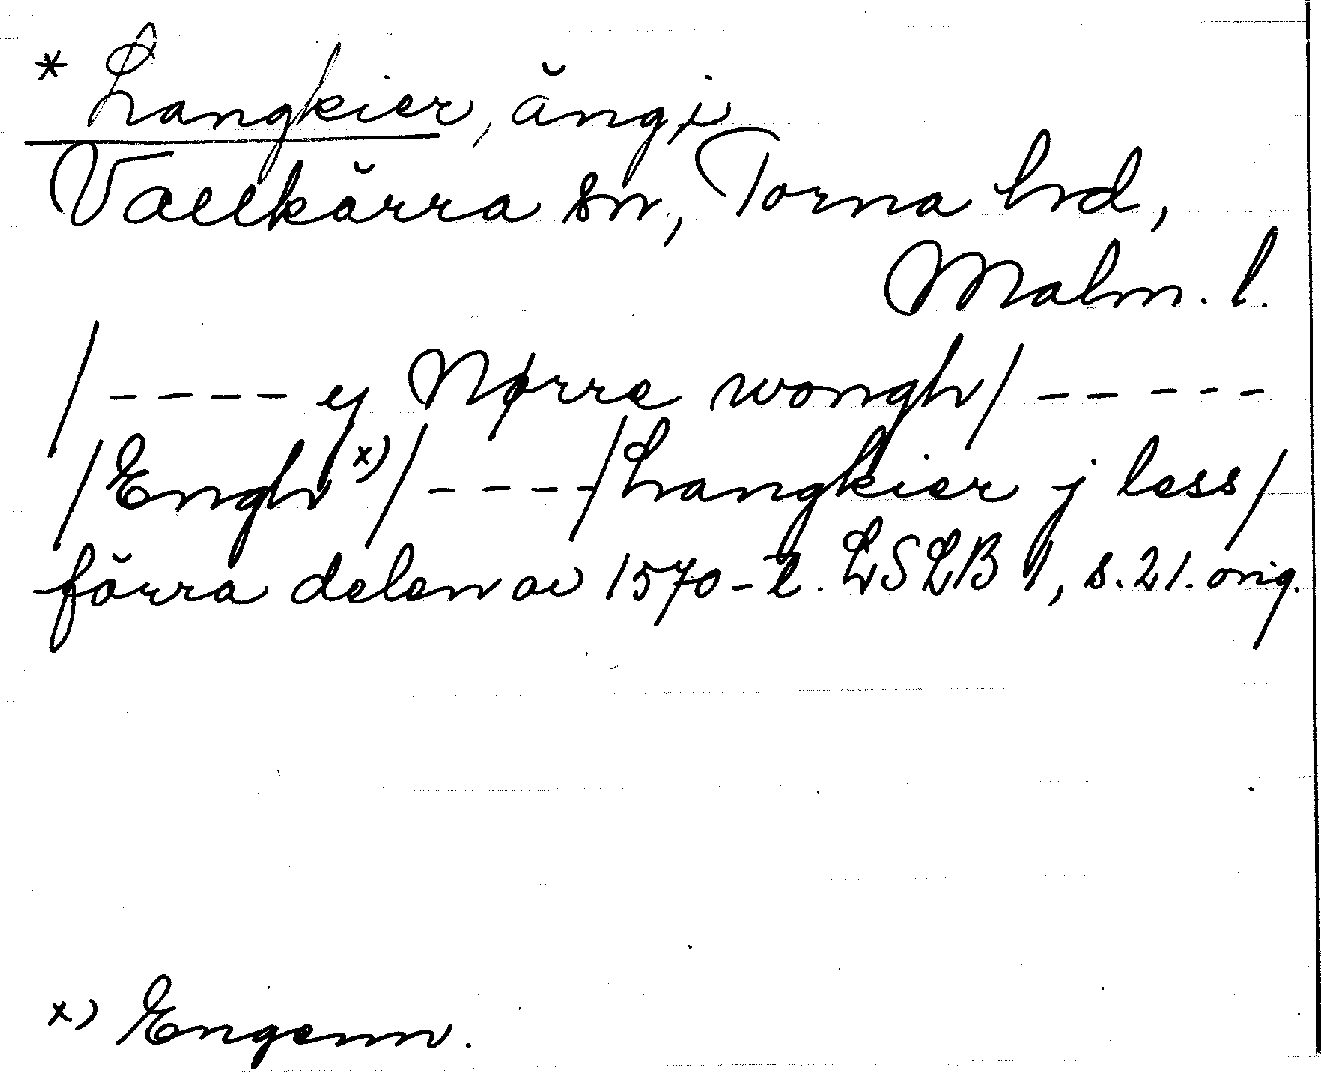 * Langkier, äng i
Vallkärra sn, Torna hd,
Malm. l.
/ - - - - ej Nørre wongh / - - - - -
/ Engh x) / - - - - / Langkier j less /
förra delen av 1570-t. LSLB 1, s. 21. orig.
x) Engenn.